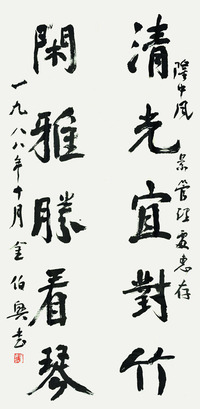 隆中风景管理处惠存
清光宜對竹
閑雅勝看琴
一九八八年十月金伯興书